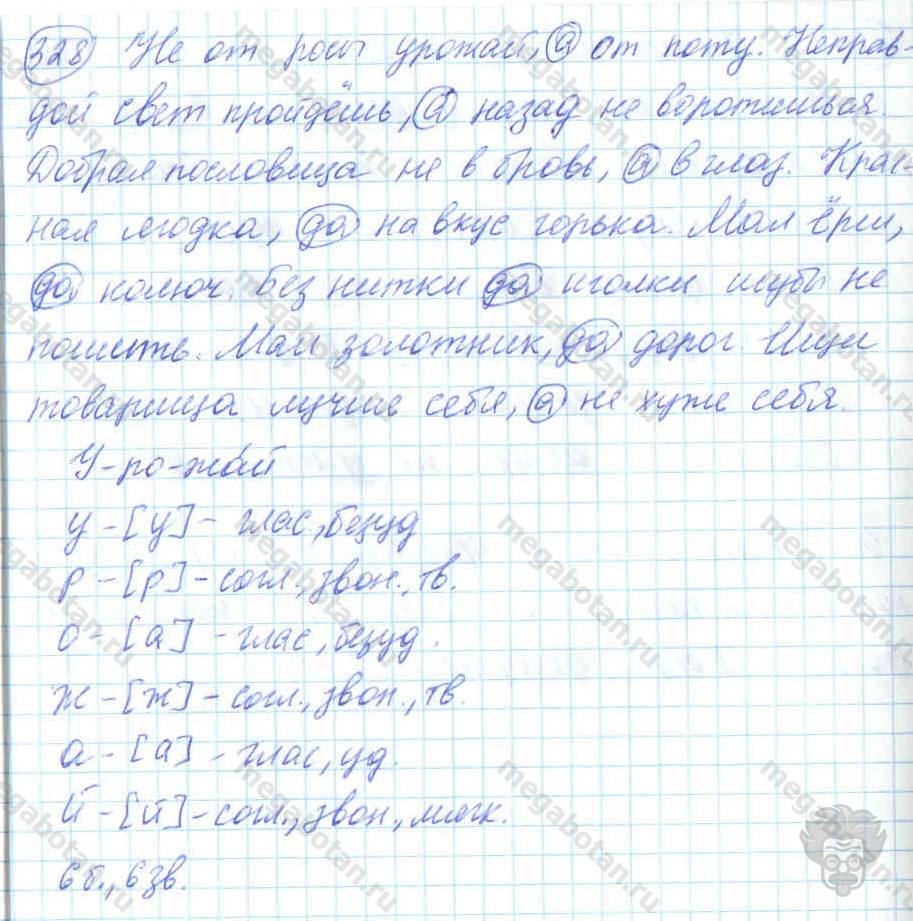 328 Не от росы урожай, а от поту. Неправ-
дой свет пройдёшь, а назад не воротишься.
Добрая пословица не в бровь, а в глаз. Крас-
ная ягодка, да на вкус горька. Мал ёрш,
да колюч. Без нитки да иголки шубы не
пошить. Мал золотник, да дорог. Ищи
товарища лучше себя, а не хуже себя.
У-ро-жа́й
у - [у] - глас., безуд
р - [р] - согл., звон., тв.
о - [а] - глас., безуд.
ж - [ж] - согл., звон., тв.
а - [а] - глас., уд.
й - [й] - согл., звон., мягк.
6 б., 6 зв.
megabotan.ru